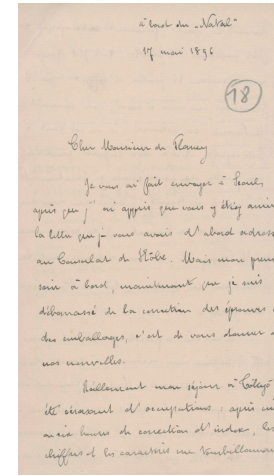 à bord du "Natal"
17 mai 1896
18
Cher Monsieur de Plancy
Je vous ai fait envoyer à Seoul,
après que j'ai appris que vous y étiez arrivé
la lettre que je vous avais d'abord adressée
au Consulat de Kobe. Mais mon premier
soin à bord, maintenant que je suis
débarrassé de la correction des épreuves et
des emballages, c'est de vous donner de
nos nouvelles.
Réellement mon séjour à Tôkyô
été écrasant d'occupations; après
six heures de correction d'index, les
chiffres et les caractères me